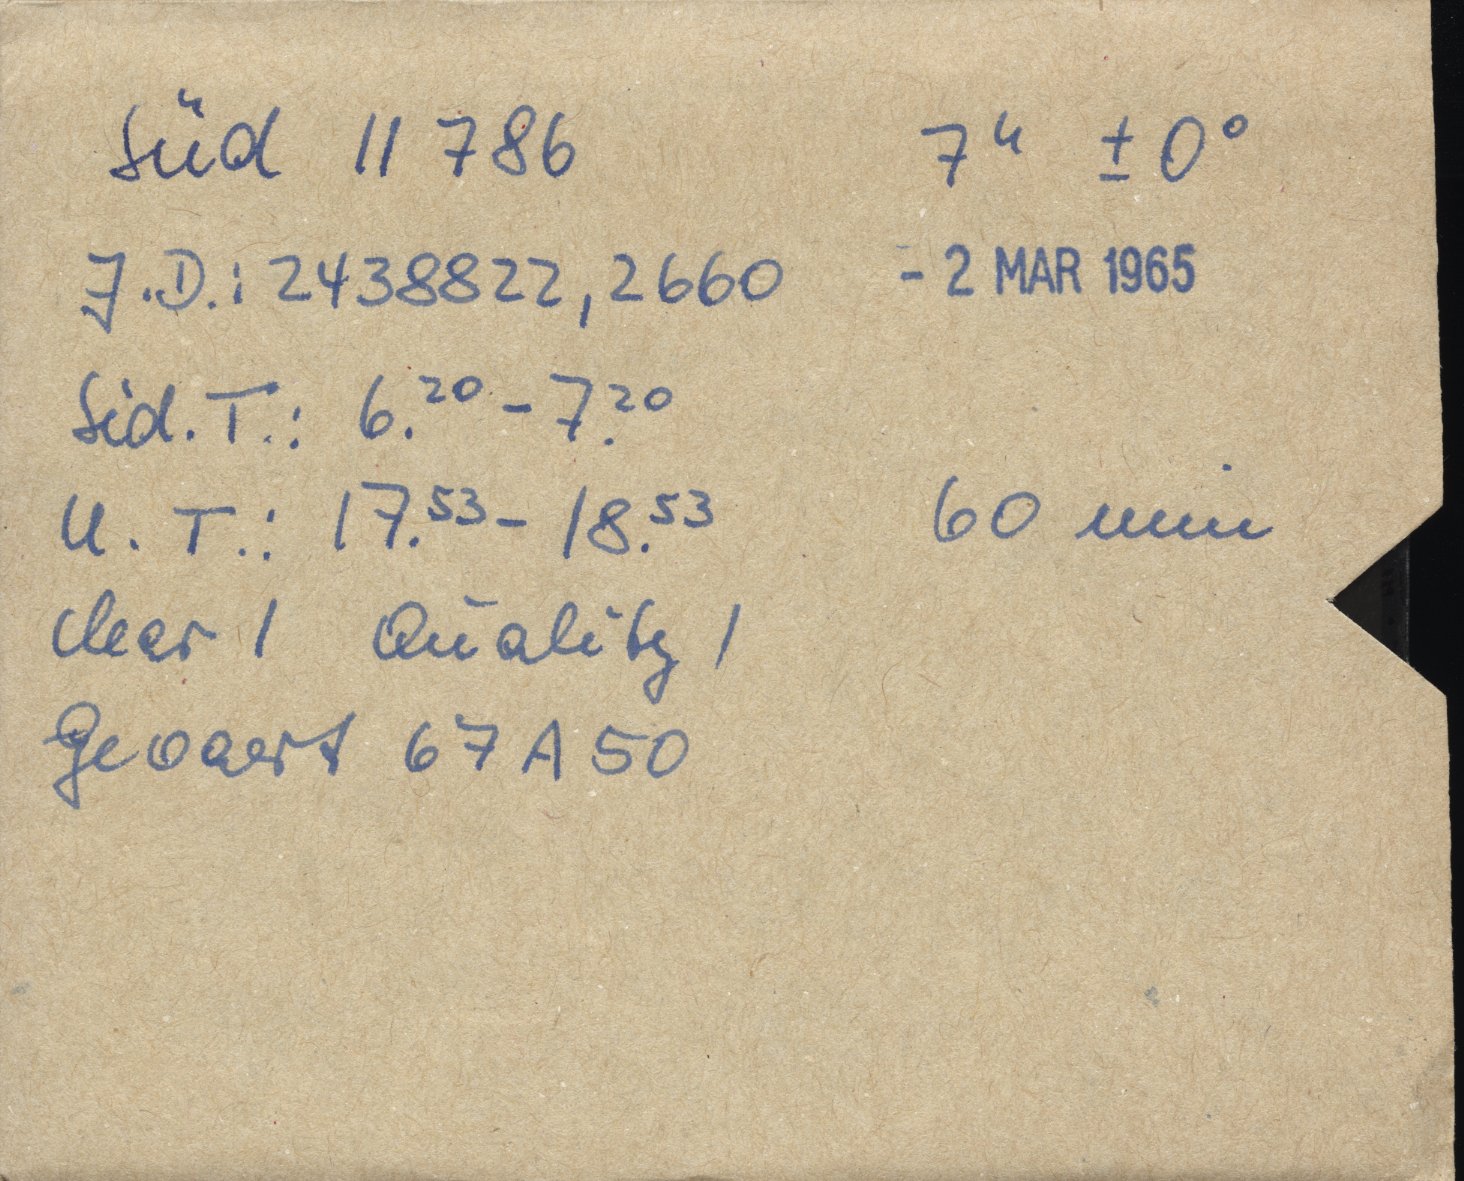 Süd 11786 7ʰ ±0°
J.D.: 2438822,2660 - 2 MAR 1965
Sid. T.: 6.²⁰ - 7.²⁰
U. T.: 17.⁵³ - 18.⁵³ 60 min
clear 1 Quality 1
Gevaert 67 A 50